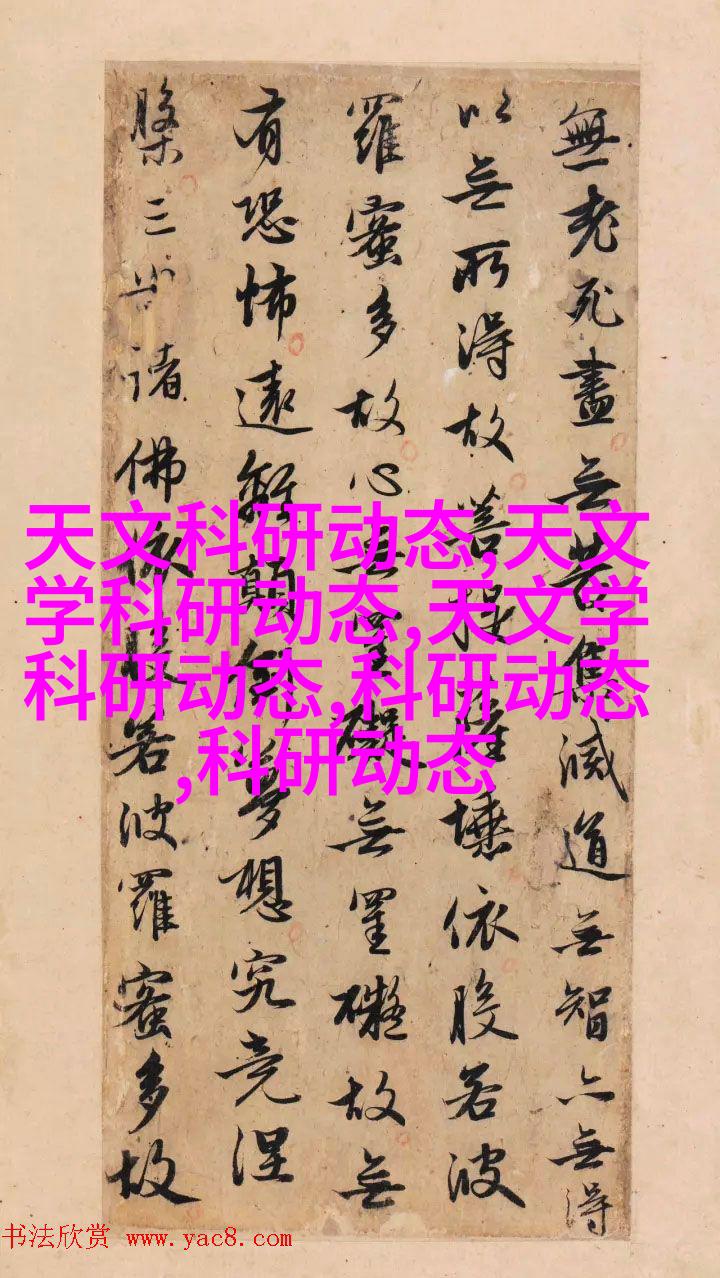 無老死盡無苦集滅道無智亦無得
以無所得故菩提薩埵依般若波
羅蜜多故心無罣礙無罣礙故無
有恐怖遠離顛倒夢想究竟涅
槃三世諸佛依般若波羅蜜多故
天文科研动态,天文
学科研动态,天文学
科研动态,科研动态
,科研动态
书法欣赏 www.yac8.com